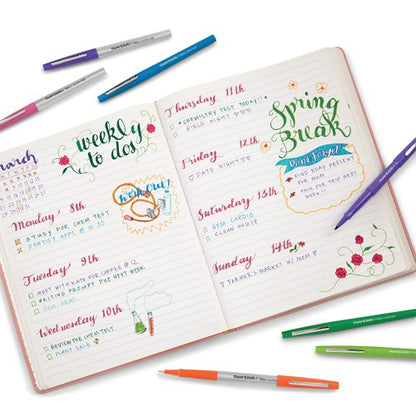 march
weekly
to dos
work out!
Monday 8th
STUDY FOR CHEM TEST
DENTIST APPT. @ 10:30
Tuesday 9th
MEET WITH KATE FOR COFFEE @ 12
WRITING PROMPT DUE NEXT WEEK
GYM: ABS
Wednesday 10th
REVIEW FOR CHEM TEST
PLANT SALE
Thursday 11th
CHEMISTRY TEST TODAY!!
GIRLS NIGHT ♡ ♡ ♡
Friday 12th
♡ DATE NIGHT ♡
Saturday 13th
GYM: CARDIO
CLEAN HOUSE
Sunday 14th
FARMER'S MARKET W/ MOM ♡
Spring
Break
Don't Forget
FIND BDAY PRESENT
FOR MOM
PACK FOR TRIP NEXT
WEEK!